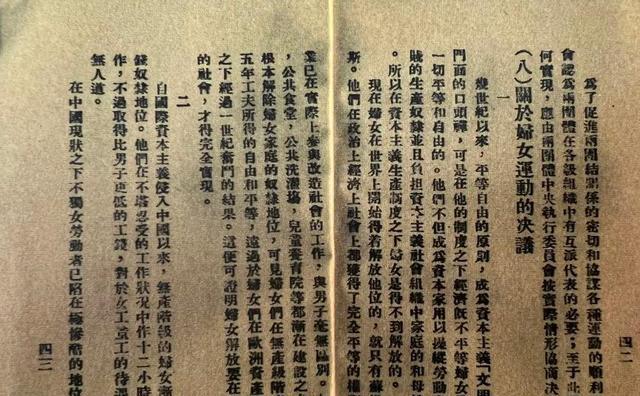 為了促進兩團結關係的密切和協謀各種運動的順利
會認為兩團體在各級組織中有互派代表的必要；至于此
何實現，應由兩團體中央執行委員會按實際情形協商决
(八)關於婦女運動的决議
一
幾世紀以來，平等自由的原則，成為資本主義「文明
門面的口頭禪，可是在他的制度之下經濟既不平等婦女
一切平等和自由的。他們不但成為資本家用以操縱勞動
賤的生產奴隸並且負担資本主義社會組織中家庭的和母
。所以在資本主義生產制度之下婦女是得不到解放的。
現在婦女在世界上開始得着解放他位的，就只有蘇
斯。他們在政治上經濟上社會上都獲得了完全平等的權
四二
業已在實際上參與改造社會的工作，與男子毫無區別。
，公共食堂，公共洗濯塲，兒童養育院等都漸在建設之
根本解除婦女家庭的奴隸地位，可見婦女們在無產級階
五年工夫所得的自由和平等，遠過於婦女們在歐洲資產
之下經過一世紀奮鬥的結果。這便可證明婦女解放要在
的社會，才得完全實現。
二
自國際資本主義侵入中國以來，無產階級的婦女漸
錢奴隸地位。他們在不堪忍受的工作狀况中作十二小時
作，不過取得比男子更低的工錢，對於女工童工的待遇
無人道。
在中國現狀之下不獨女勞動者已陷在極慘酷的地位
四三